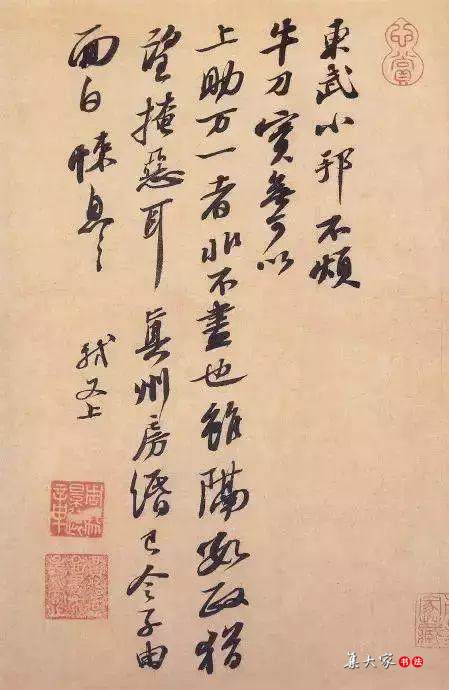 東武小邦不煩
牛刀實無可以
上助万一者非不盡也雖隔數政猶
望掩惡耳真州房緡已令子由
面白悚息〻
軾又上
集大家 书法